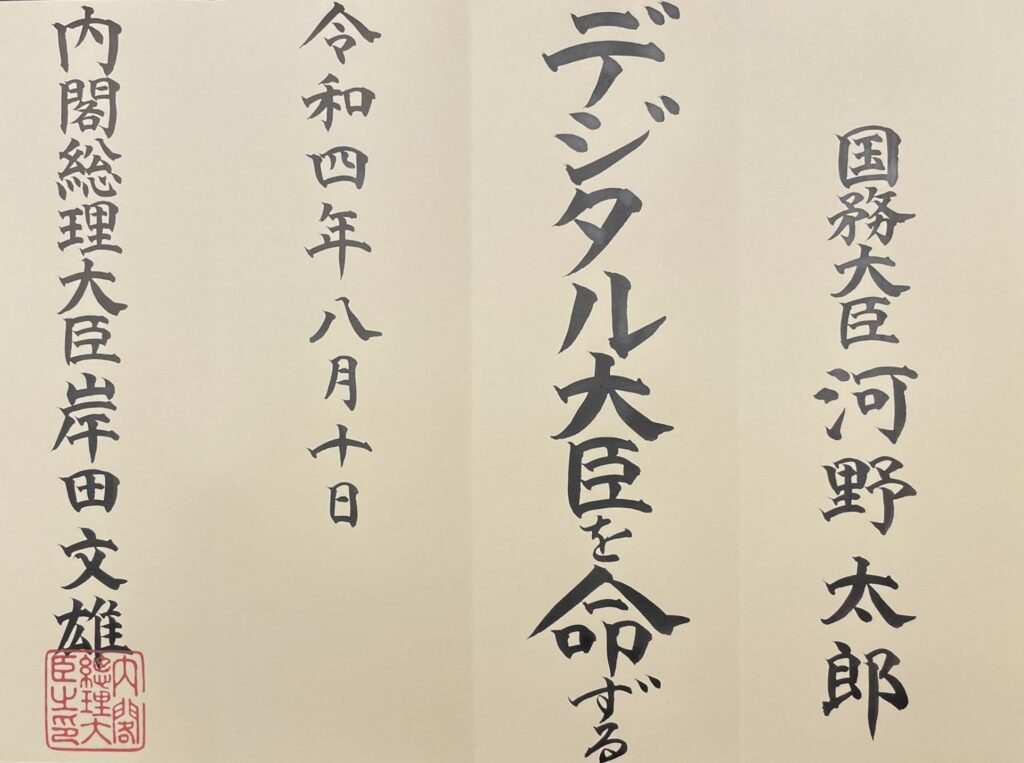 国務大臣 河野太郎
デジタル大臣を命ずる
令和四年八月十日
内閣総理大臣 岸田文雄
内閣
総理大
臣之印